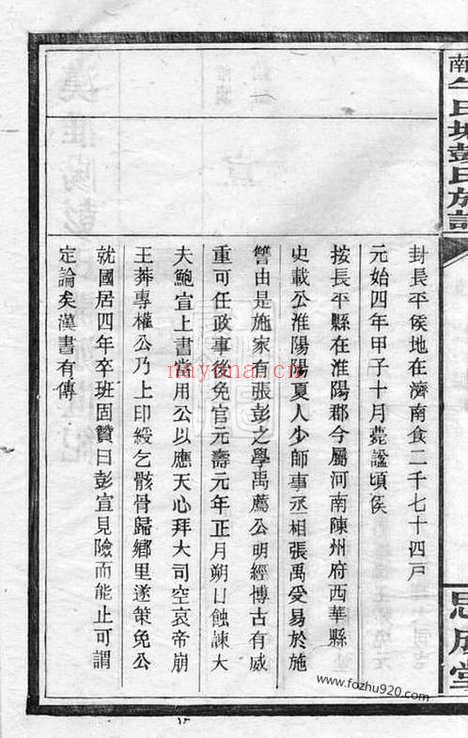 南
彭氏族譜
封長平侯地在濟南食二千七十四戸
元始四年甲子十月薨謚頃侯
按長平縣在淮陽郡今屬河南陳州府西華縣
史載公淮陽陽夏人少師事丞相張禹受易於施
讐由是施家有張彭之學禹薦公明經博古有威
重可任政事後免官元壽元年正月朔日蝕諫大
夫鮑宣上書當用公以應天心拜大司空哀帝崩
王莽專權公乃上印綬乞骸骨歸鄉里遂策免公
就國居四年卒班固贊曰彭宣見險而能止可謂
定論矣漢書有傳
思成堂
nayona.cn
www.fozhu920.com